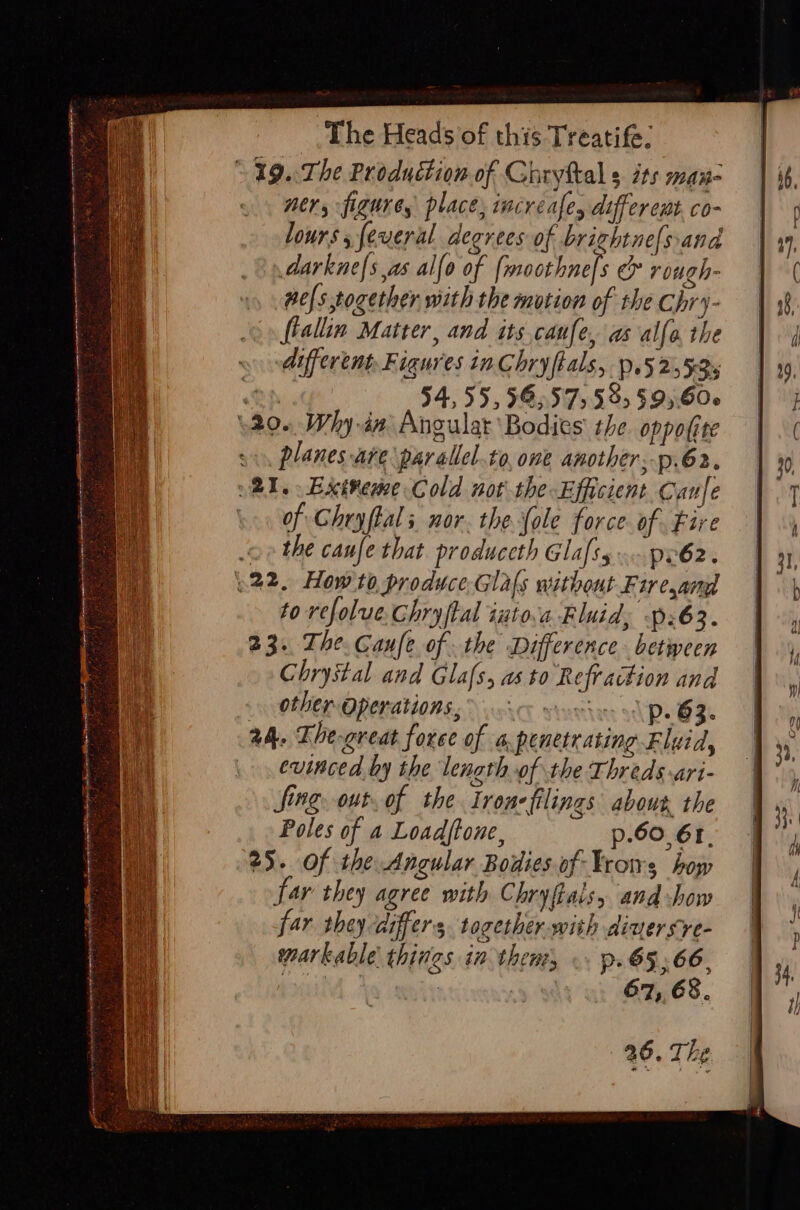 The Heads of this Treatiſe.
19. The Production of Chryſtal; its man-
ner, figure, place, increaſe, different co-
lours, ſeveral degrees of brightneſs and
darkneſs, as alſo of ſmoothneſs & rough-
neſs, together with the motion of the Chry-
ſtallin Matter, and its cauſe, as alſo the
different Figures in Chryſtals, p.52,53,
54,55,56,57,58,59,60.
20. Why in Angular Bodies the oppoſite
planes are parallel to one another, p.62.
21. Extreme Cold not the Efficient Cauſe
of Chryſtal; nor the ſole force of Fire
the cauſe that produceth Glaſs, p.62.
22. How to produce Glaſs without Fire, and
to reſolve Chryſtal into a Fluid, p.63.
23. The Cauſe of the Difference between
Chryſtal and Glaſs, as to Refraction and
other Operations, p.63.
24. The great force of a penetrating Fluid,
evinced by the length of the Threds ari-
ſing out of the Iron-filings about the
Poles of a Loadſtone, p.60,61.
25. Of the Angular Bodies of Iron; how
far they agree with Chryſtals, and how
far they differ; together with divers re-
markable things in them, p.65,66,
67,68.
26. The
16.
17.
18.
19.
30.
31.
32.
33.
34.